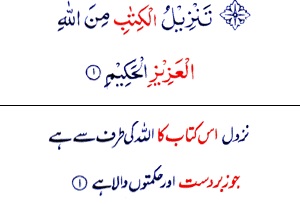 تَنْزِيْلُ الْكِتٰبِ مِنَ اللّٰهِ
الْعَزِيْزِ الْحَكِيْمِ ۝۱
نزول اس کتاب کا اللہ کی طرف سے ہے
جو زبردست اور حکمتوں والا ہے ۝۱